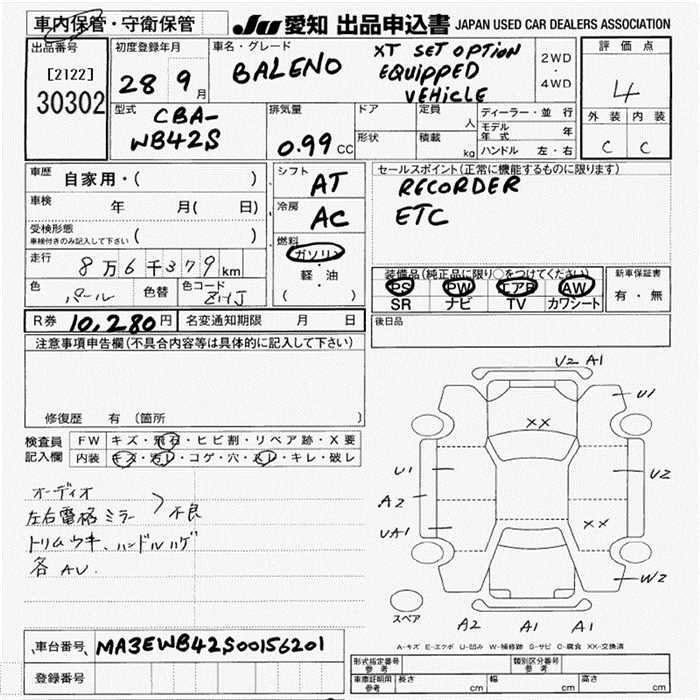 車内保管・守衛保管
JU 愛知 出品申込書 JAPAN USED CAR DEALERS ASSOCIATION
出品番号
[2122]
30302
初度登録年月
28 9月
車名・グレード
BALENO XT SET OPTION
EQUIPPED
VEHICLE
2WD
・
4WD
評価点
4
外装 内装
C C
型式
CBA-
WB42S
排気量
0.99 CC
ドア
形状
定員 人
積載 kg
ディーラー・並行
モデル年式 年
ハンドル 左・右
車歴 自家用・( )
車検 年 月( 日)
受検形態
車検付きのみ記入して下さい ( )
走行 8万6千379km
色 パール 色替 色コード ZHJ
シフト
AT
冷房
AC
燃料
ガソリン
・
軽・油
( )
セールスポイント(正常に機能するものに限ります)
RECORDER
ETC
装備品(純正品に限り○をつけてください)
PS PW エアB AW
SR ナビ TV カワシート
新車保証書
有・無
R券 10,280円 名変通知期限 月 日
後日品
注意事項申告欄(不具合内容等は具体的に記入して下さい)
修復歴 有 (箇所 )
検査員
記入欄
FW キズ・飛石・ヒビ割・リペア跡・X要
内装 キズ・汚レ・コゲ・穴・スレ・キレ・破レ
オーディオ
左右電格ミラー 不良
トリムウキ、ハンドルハゲ
各AU.
U2 A1
U1
XX
U1
U2
A2
UA1
XX
W2
スペア
A2 A1 A1
A-キズ E-エクボ U-凹み W-補修跡 S-サビ C-腐食 XX-交換済
車台番号 MA3EWB42S00156201
登録番号
形式指定番号
参考
類別区分番号
参考
車庫証明用
参考
長さ cm 幅 cm 高さ cm